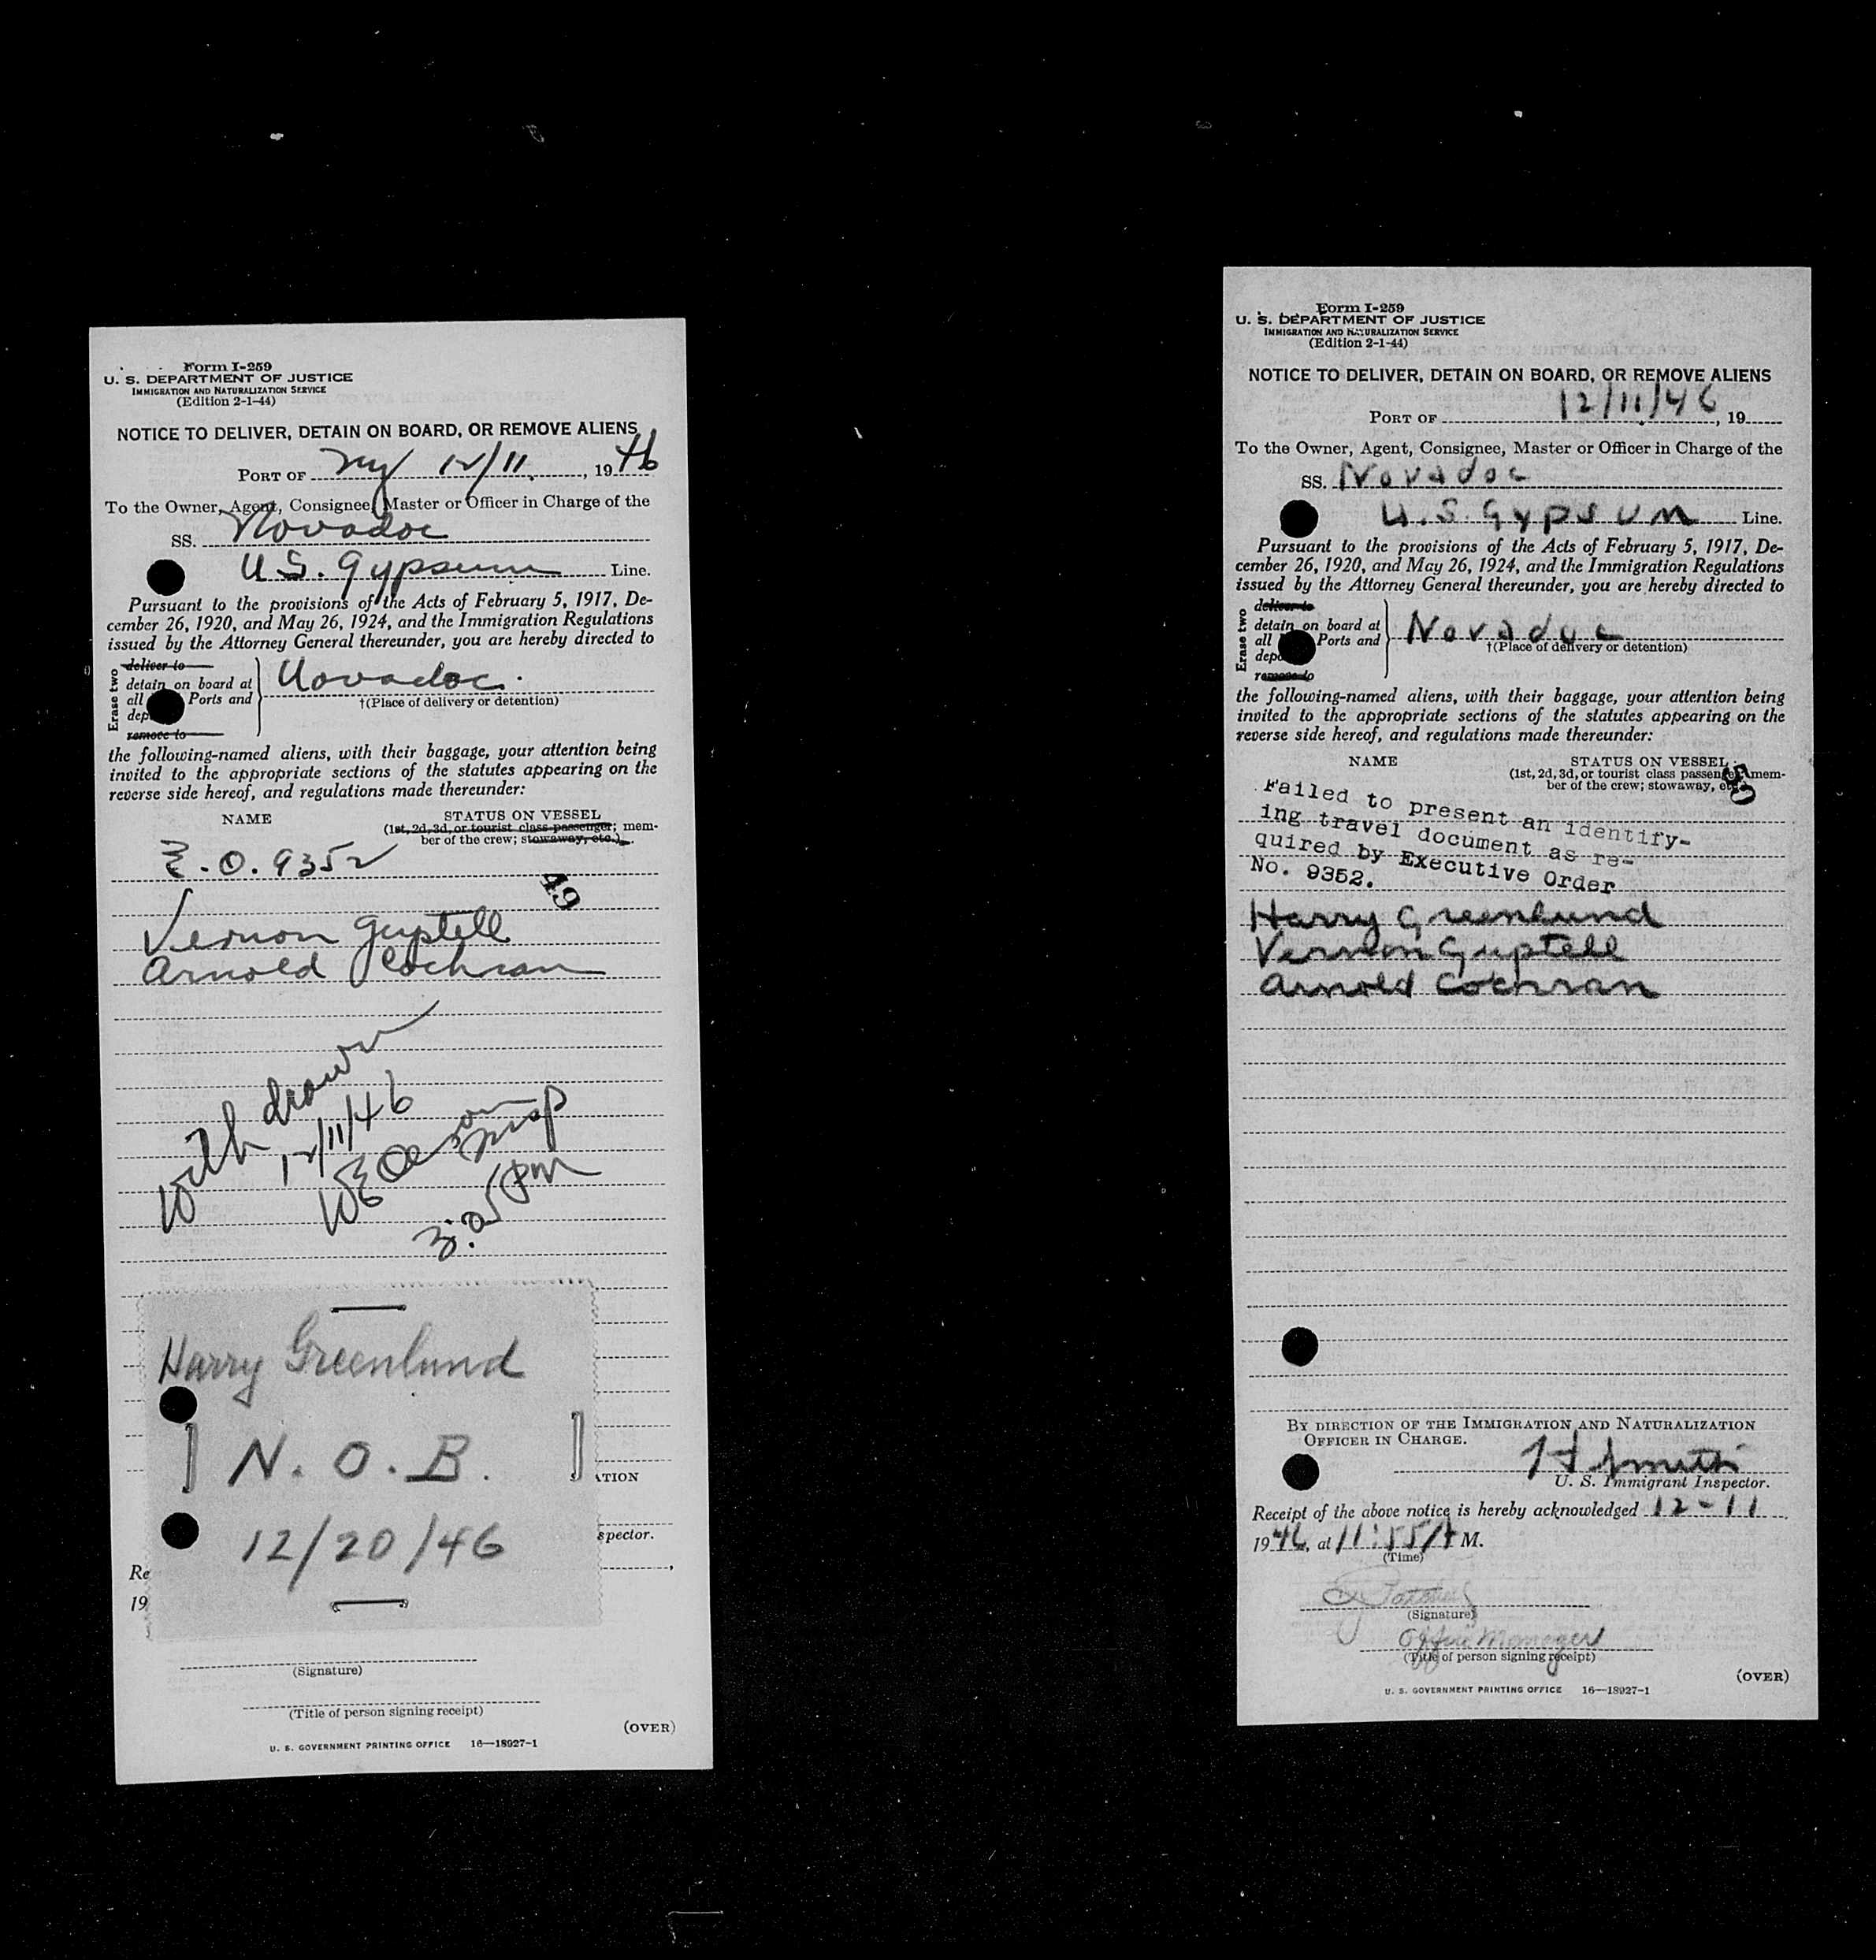 Form I-259
U. S. DEPARTMENT OF JUSTICE
IMMIGRATION AND NATURALIZATION SERVICE
(Edition 2-1-44)
NOTICE TO DELIVER, DETAIN ON BOARD, OR REMOVE ALIENS
PORT OF NY 12/11, 1946
To the Owner, Agent, Consignee, Master or Officer in Charge of the
SS. Novadoc
U.S. Gypsum Line.
Pursuant to the provisions of the Acts of February 5, 1917, De-
cember 26, 1920, and May 26, 1924, and the Immigration Regulations
issued by the Attorney General thereunder, you are hereby directed to
Erase two
deliver to
detain on board at
all Ports and
remove to
Novadoc.
†(Place of delivery or detention)
the following-named aliens, with their baggage, your attention being
invited to the appropriate sections of the statutes appearing on the
reverse side hereof, and regulations made thereunder:
NAME STATUS ON VESSEL
(1st, 2d, 3d, or tourist class passenger; mem-
ber of the crew; stowaway, etc.)
E.O. 9352
49
Vernon Guptell
Arnold Cochran
withdrawn
12/11/46
3:05 PM
Harry Greenlund
N.O.B.
12/20/46
ATION
spector.
Re
19
(Signature)
(Title of person signing receipt)
(OVER)
U. S. GOVERNMENT PRINTING OFFICE 16—18927-1
Form I-259
U. S. DEPARTMENT OF JUSTICE
IMMIGRATION AND NATURALIZATION SERVICE
(Edition 2-1-44)
NOTICE TO DELIVER, DETAIN ON BOARD, OR REMOVE ALIENS
PORT OF 12/11/46, 19
To the Owner, Agent, Consignee, Master or Officer in Charge of the
SS. Novadoc
U.S. Gypsum Line.
Pursuant to the provisions of the Acts of February 5, 1917, De-
cember 26, 1920, and May 26, 1924, and the Immigration Regulations
issued by the Attorney General thereunder, you are hereby directed to
Erase two
deliver to
detain on board at
all Ports and
remove to
Novadoc
†(Place of delivery or detention)
the following-named aliens, with their baggage, your attention being
invited to the appropriate sections of the statutes appearing on the
reverse side hereof, and regulations made thereunder:
NAME STATUS ON VESSEL
(1st, 2d, 3d, or tourist class passenger; mem-
ber of the crew; stowaway, etc.)
50
Failed to present an identify-
ing travel document as re-
quired by Executive Order
No. 9352.
Harry Greenlund
Vernon Guptell
Arnold Cochran
BY DIRECTION OF THE IMMIGRATION AND NATURALIZATION
OFFICER IN CHARGE.
H Smith
U. S. Immigrant Inspector.
Receipt of the above notice is hereby acknowledged 12-11,
1946, at 11:55 A M.
(Time)
(Signature)
Office Manager
(Title of person signing receipt)
(OVER)
U. S. GOVERNMENT PRINTING OFFICE 16—18927-1